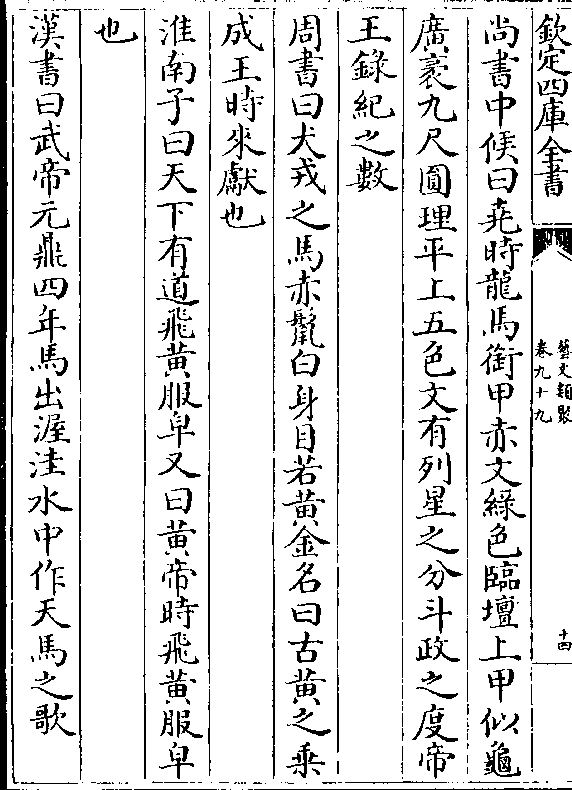 欽定四庫全書
藝文類聚
卷九十九
十四
尚書中候曰堯時龍馬銜甲赤文綠色臨壇上甲似龜
廣袤九尺圓理平上五色文有列星之分斗政之度帝
王錄紀之數
周書曰犬戎之馬赤鬣白身目若黃金名曰古黃之乗
成王時來獻也
淮南子曰天下有道飛黃服皁又曰黃帝時飛黃服皁
也
漢書曰武帝元鼎四年馬出渥洼水中作天馬之歌